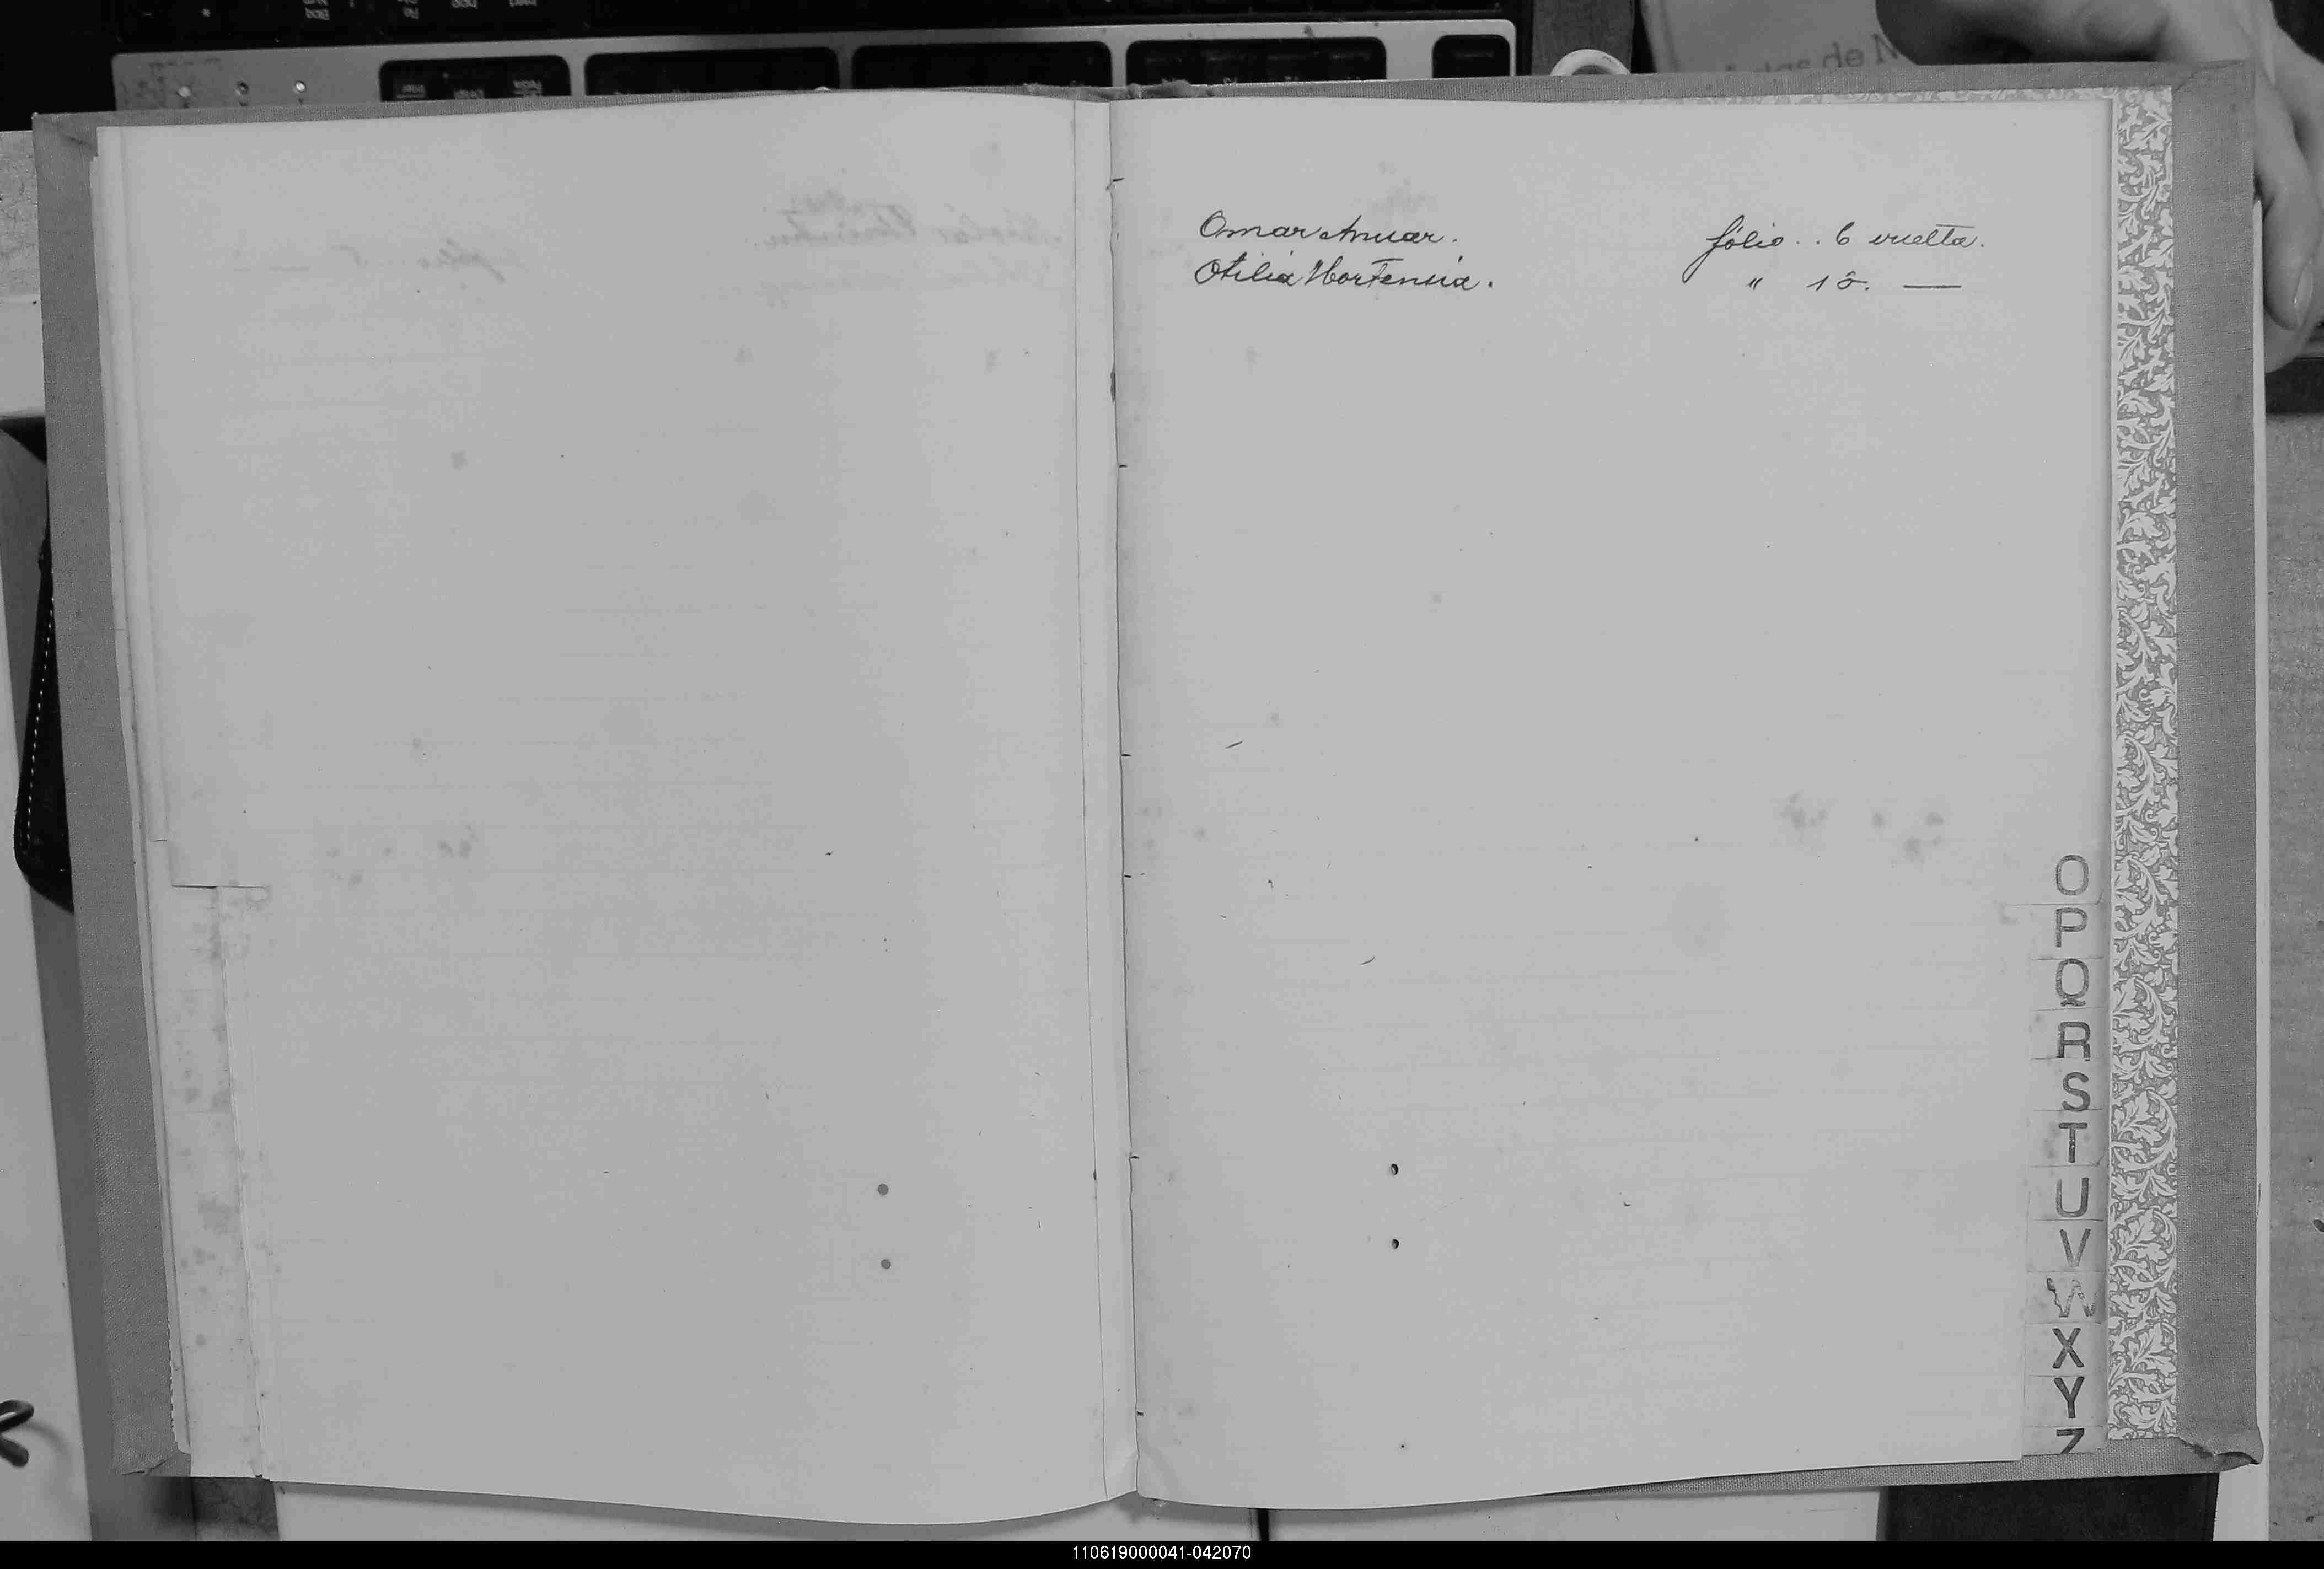 Omar Anuar. folio . . 6 vuelta.
Otilia Hortensia. " 15. —
O
P
Q
R
S
T
U
V
W
X
Y
Z
110619000041-042070